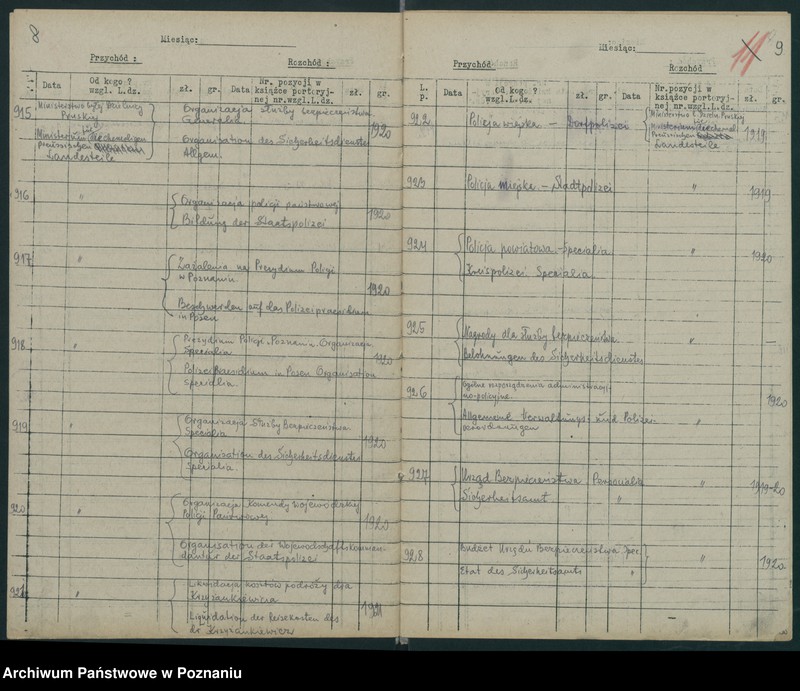 8
Miesiąc:
Przychód :
Rozchód :
Data
Od kogo ?
wzgl. L.dz.
zł.
gr.
Data
Nr. pozycji w
książce portoryj-
nej nr.wzgl.L.dz.
zł.
gr.
915
Ministerstwo byłej Dzielnicy
Pruskiej
Ministerium
preussischen
Landesteile
Organizacja służby bezpieczeństwa
Generalia
Organisation des Sicherheitsdienstes
Allgem.
1920
916
"
Organizacja policji państwowej
Bildung der Staatspolizei
1920
917
"
Zażalenia na Prezydium Policji
w Poznaniu
Beschwerden auf das Polizeipraesidium
in Posen
1920
918
"
Prezydium Policji "Poznań" Organizacja
Specialia
Polizeipraesidium in Posen Organisation
Specialia
1920
919
"
Organizacja Służby Bezpieczeństwa
Specialia
Organisation des Sicherheitsdienstes
Specialia
1920
920
"
Organizacja Komendy Wojewódzkiej
Policji Państwowej
Organisation der Wojewodschaftskomman-
dantur der Staatspolizei
1920
921
"
Likwidacja kosztów podróży dra
Krzyżankiewicza
Liquidation der Reisekosten des
dr Krzyżankiewicz
1921
9
Miesiąc:
Przychód
Rozchód
L.
p.
Data
Od kogo ?
wzgl. L.dz.
zł.
gr.
Data
Nr.pozycji w
książce portoryj-
nej nr.wzgl.L.dz.
zł.
gr.
922
Policja wiejska – Dorfpolizei
Ministerstwo b. Dzieln. Pruskiej
Ministerium
Preussischen
Landesteile
1919
923
Policja miejska – Stadtpolizei
"
1919
924
Policja powiatowa – Specialia
Kreispolizei Specialia
"
1920
925
Nagrody dla służby bezpieczeństwa
Belohnungen des Sicherheitsdienstes
"
—
926
Ogólne rozporządzenia administracyj-
no-policyjne
Allgemeine Verwaltungs- und Polizei-
verordnungen
"
1920
927
Urząd Bezpieczeństwa Personalia
Sicherheitsamt "
"
1919-20
928
Budżet Urzędu Bezpieczeństwa Spec.
Etat des Sicherheitsamts "
"
1920
Archiwum Państwowe w Poznaniu